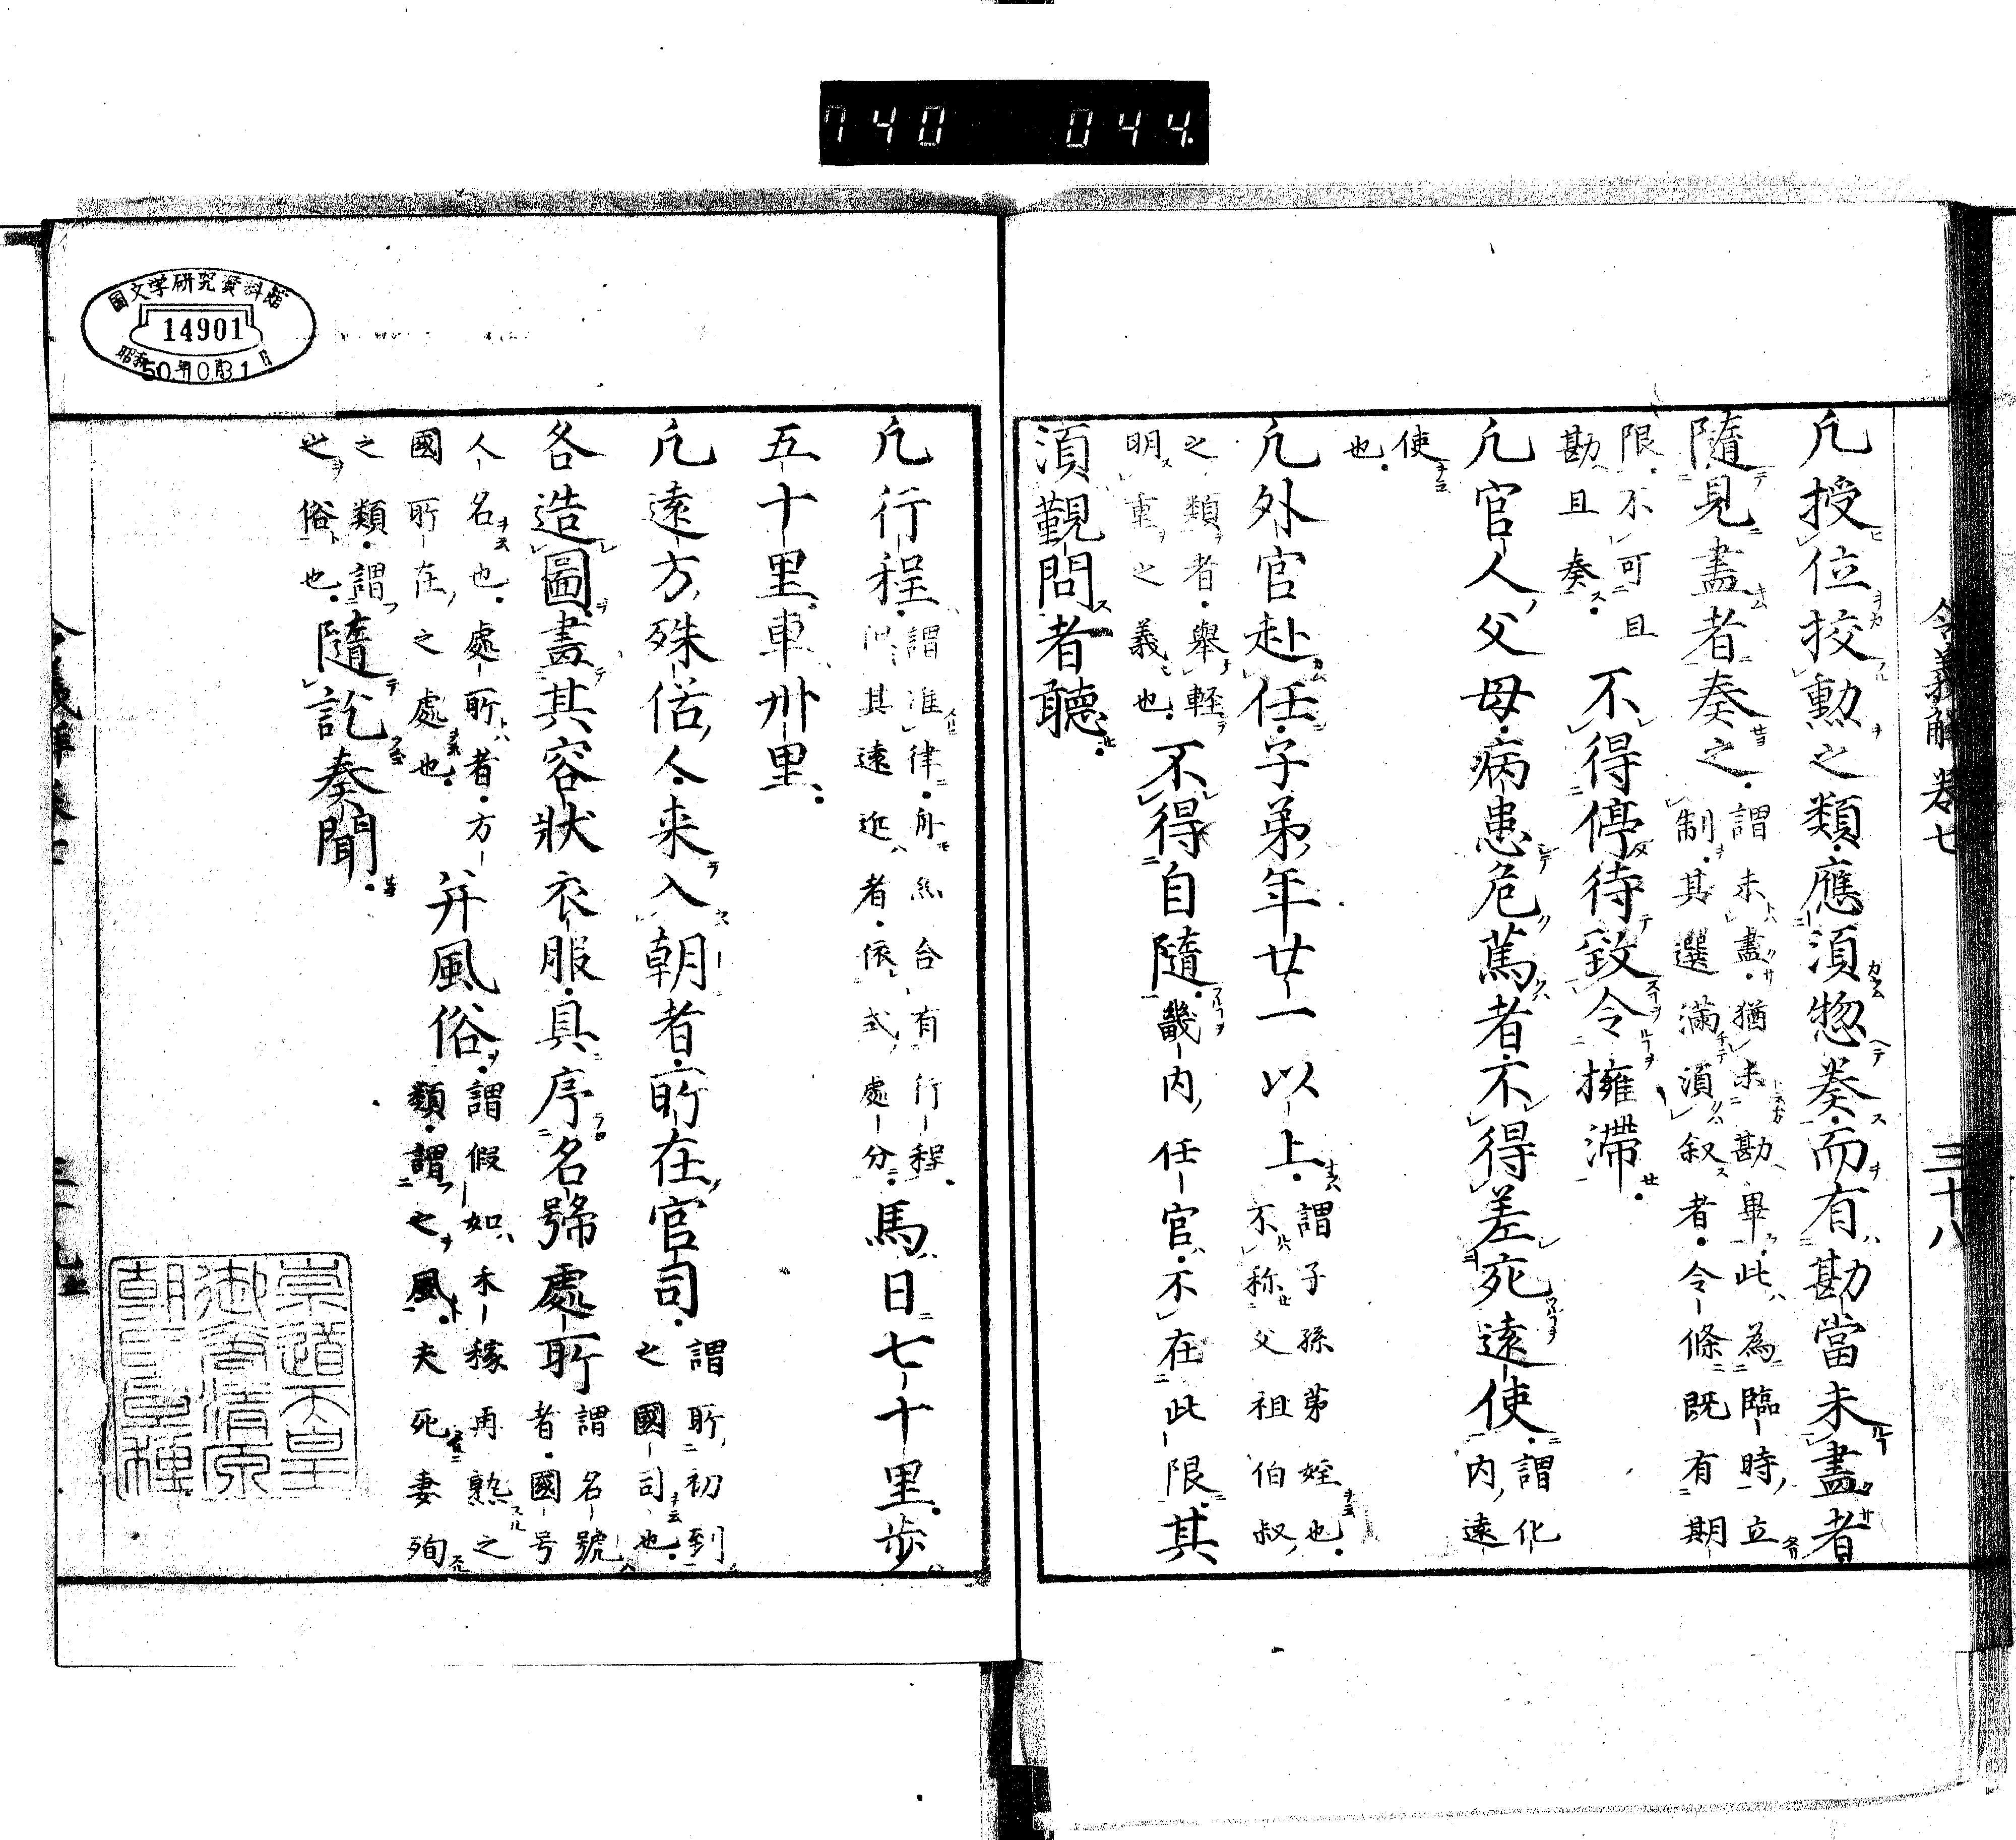 740 044
令義解卷七 三十八
凢授位挍勲之類應湏惣奏而有勘當未盡者
隨見盡者奏之謂未盡猶未勘畢此為臨時立
制其選滿湏叙者令條既有期
限不可且
勘且奏不得停待致令擁滯
凢官人父母病患危篤者不得差宛遠使謂化
内遠
使
也
凢外官赴任子弟年廿一以上謂子孫弟姪也
不称父祖伯叔
之類者舉輕
明重之義也不得自隨畿内任官不在此限其
湏覲問者聽
凢行程謂准律舟船合有行程
但其遠近者依式處分馬日七十里歩
五十里車卅里
凢遠方殊俗人来入朝者所在官司謂所初到
之國司也
各造圖畫其容狀衣服具序名號處所謂名號
者國号
人名也處所者方
國所在之處也并風俗謂假如禾稼再熟之
類謂之風夫死妻殉
之類謂
之俗也隨訖奏聞
國文学研究資料館
14901
昭和50年10月31日
崇道天皇
御裔清原